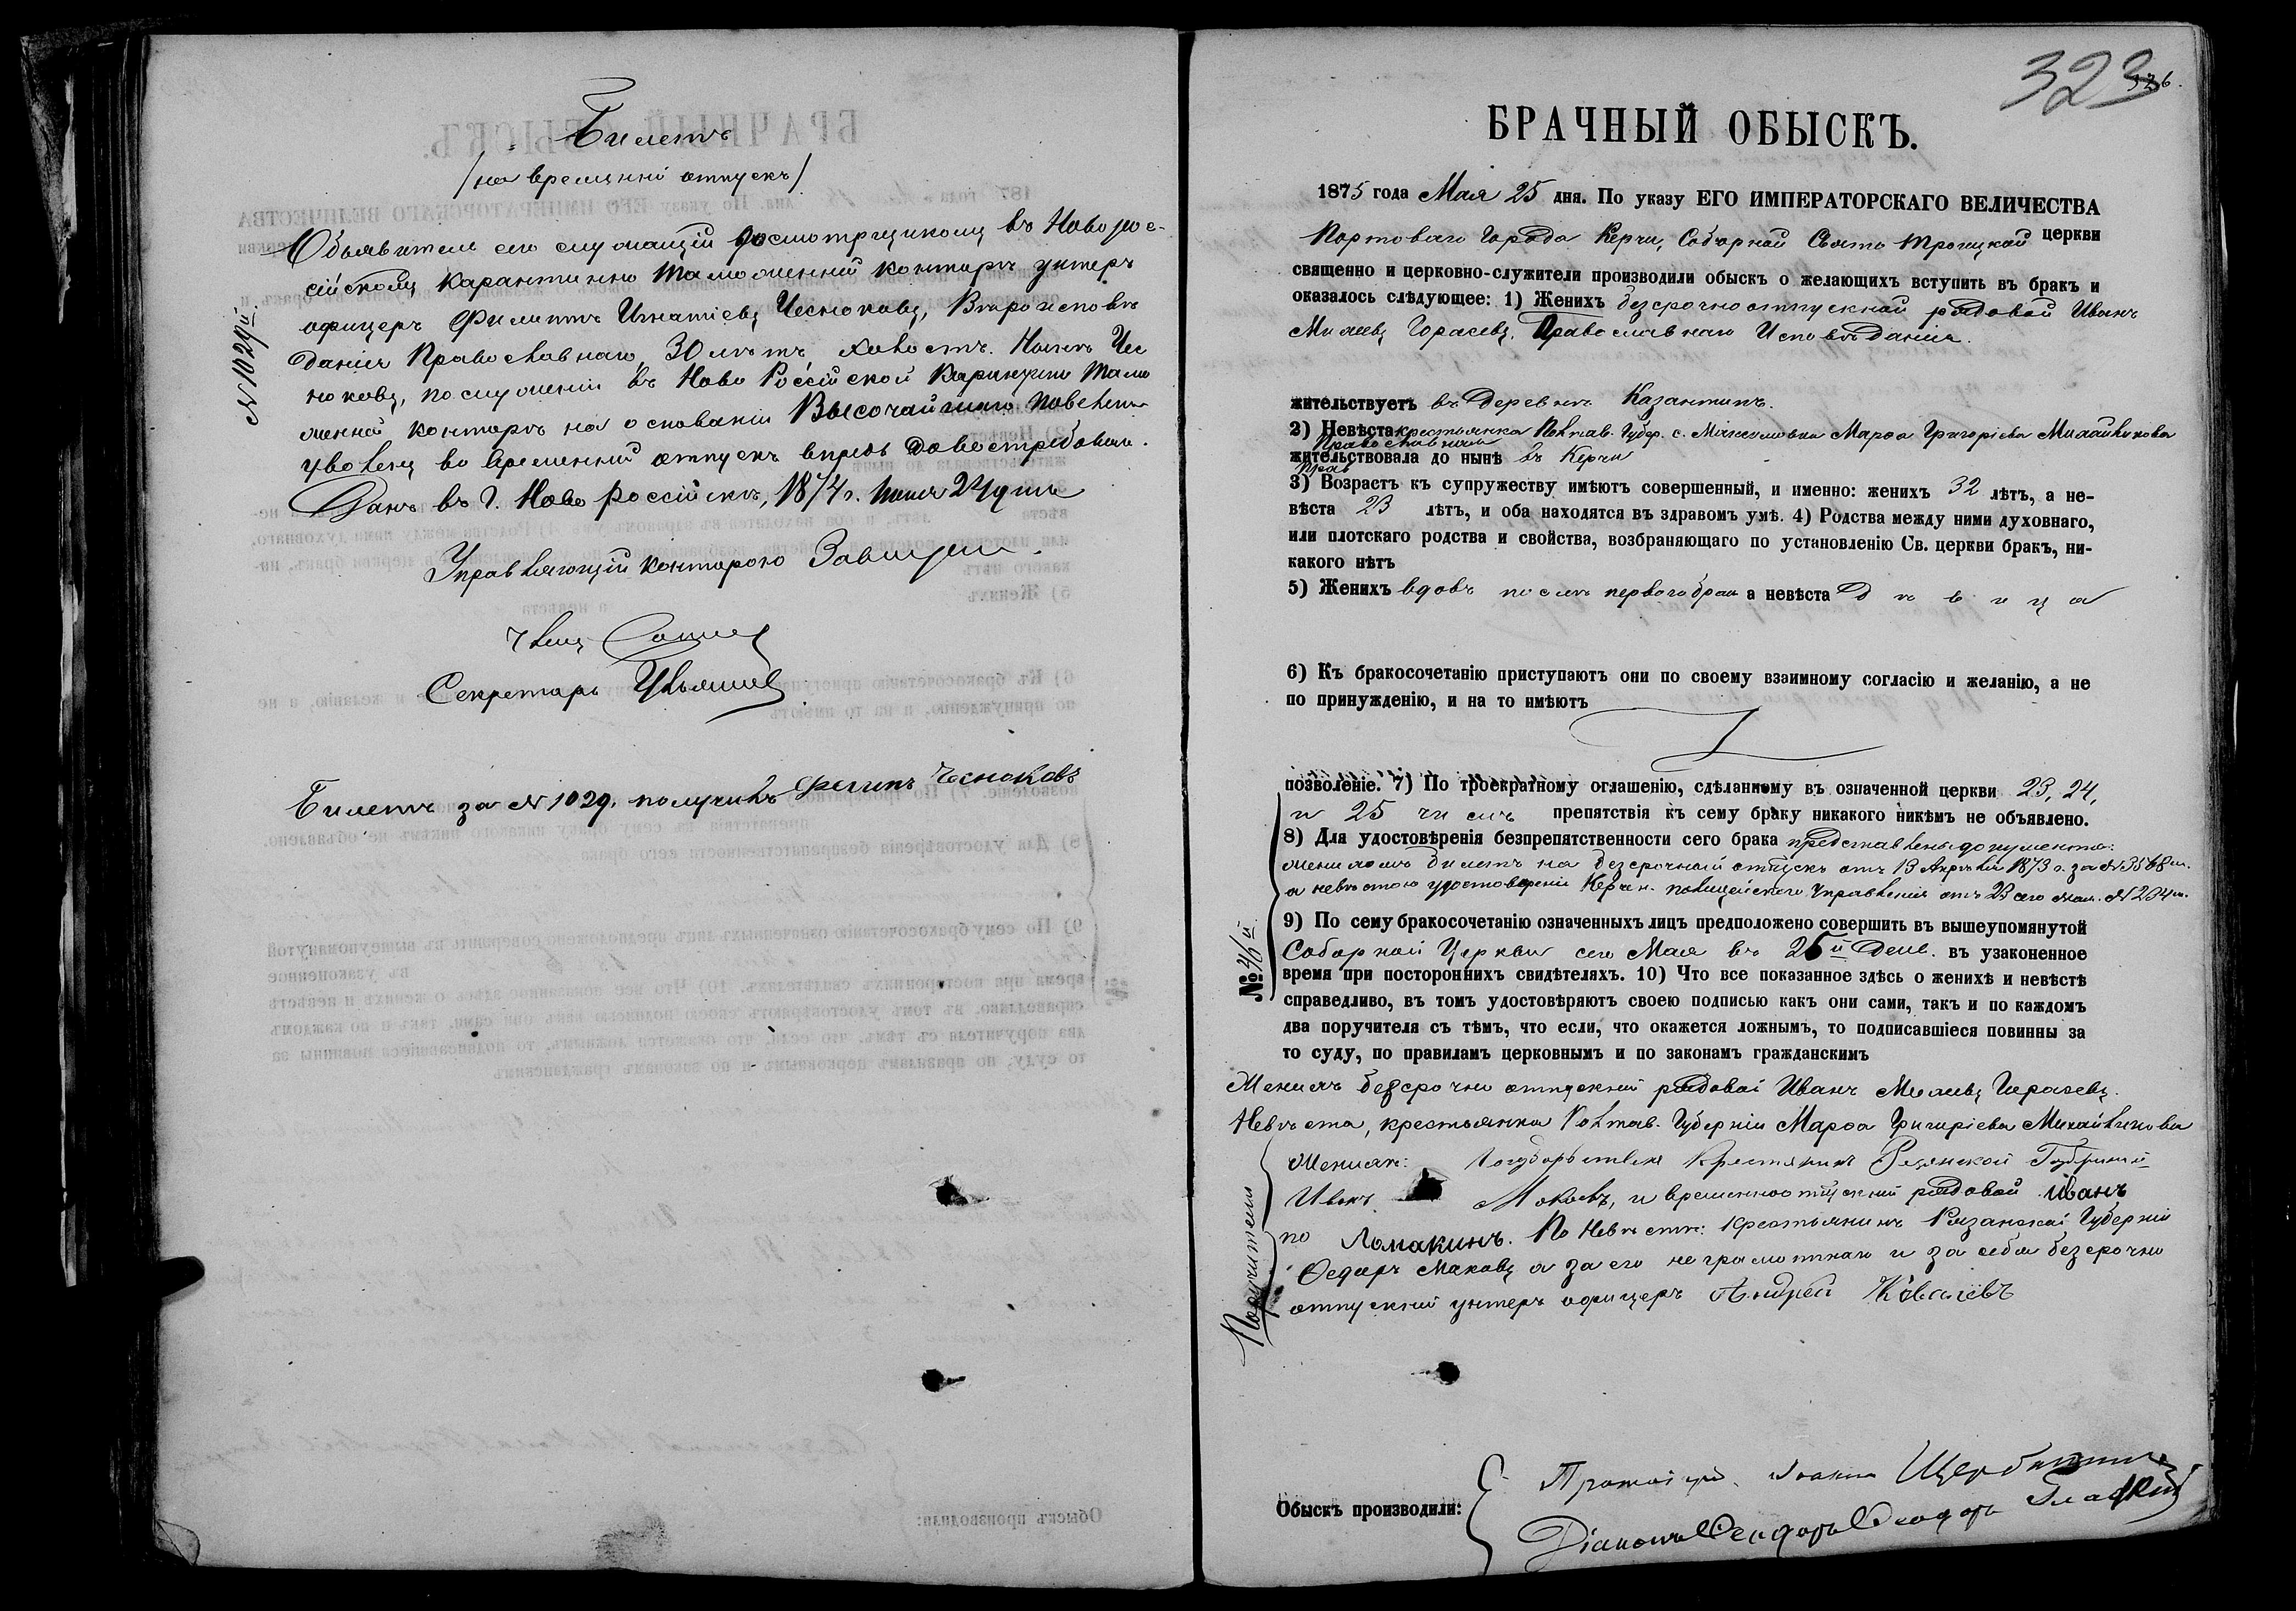 Билетъ
/на временній отпускъ/
Объявителя сего служащій досмотрщикомъ въ Новорос-
сійскомъ Карантинно Таможенной конторѣ унтеръ
офицеръ Филиппъ Игнатіевъ Чесноковъ, Вѣроисповѣ
данія Православнаго, 30 лѣтъ, холостъ.
ноковъ, по служеніи въ Ново Россійской Карантино Тамо
женной конторѣ на основаніи Высочайшаго повелѣн
уволенъ во временній отпускъ впредь до востребован.
Данъ въ Г. Новороссійскъ, 1874 г. 24 дня
Управляющій конторою
Членъ
Секретарь
№ 1029й
Билетъ за № 1029. получилъ Филипъ Чесноковъ
323
326.
БРАЧНЫЙ ОБЫСКЪ.
1875 года Мая 25 дня. По указу ЕГО ИМПЕРАТОРСКАГО ВЕЛИЧЕСТВА
Портоваго Города Керчи, Соборной Свято Троицкой церкви
священно и церковно-служители производили обыскъ о желающихъ вступить въ бракъ и
оказалось слѣдующее: 1) Женихъ безсрочноотпускной рядовой Иванъ
Горасевъ, Православнаго Исповѣданія.
жительствуетъ въ Деревнѣ Казантипъ.
2) Невѣста крестьянка Полтав. Губер. с. Марѳа Григоріева Михайликова
Православная
жительствовала до нынѣ въ Керчи
3) Возрастъ къ супружеству имѣютъ совершенный, и именно: женихъ 32 лѣтъ, а не-
вѣста 23 лѣтъ, и оба находятся въ здравомъ умѣ. 4) Родства между ними духовнаго,
или плотскаго родства и свойства, возбраняющаго по установленію Св. церкви бракъ, ни-
какого нѣтъ
5) Женихъ вдовъ послѣ перваго брака а невѣста Дѣвица
6) Къ бракосочетанію приступаютъ они по своему взаимному согласію и желанію, а не
по принужденію, и на то имѣютъ
позволеніе. 7) По троекратному оглашенію, сдѣланному въ означенной церкви 23, 24,
и 25 числъ препятствія къ сему браку никакого никѣмъ не объявлено.
8) Для удостовѣренія безпрепятственности сего брака представлены документы:
женихомъ билетъ на безсрочный отпускъ отъ 13 Апрѣля 1873 г. за № 3568м.
а невѣстою удостовереніе Керчен. полицейскаго Управленія отъ 23 сего Мая. № 234м.
9) По сему бракосочетанію означенныхъ лицъ предположено совершить въ вышеупомянутой
Соборной Церкви сего Мая въ 25й День. въ узаконенное
время при постороннихъ свидѣтеляхъ. 10) Что все показанное здѣсь о женихѣ и невѣстѣ
справедливо, въ томъ удостовѣряютъ своею подписью какъ они сами, такъ и по каждомъ
два поручителя съ тѣмъ, что если, что окажется ложнымъ, то подписавшіеся повинны за
то суду, по правиламъ церковнымъ и по законамъ гражданскимъ
№ 46й
Женихъ безсрочно отпускній рядовой Иванъ Горасевъ.
Невѣста, крестьянка Полтав. Губерніи Марѳа Григоріева Михайликова
Поручители
по
Женихѣ: Крестянинъ Губерніи
Иванъ Моковъ, и временноотпускній рядовой Иванъ
Ломакинъ. По Невѣстѣ: крестьянинъ Рязанской Губерніи
Ѳедоръ Маковъ а за его неграмотнаго и за себя безсрочно
отпускній унтеръ офицеръ Андрей Ковалевъ
Обыскъ производили:
Протоіерей Іоаннъ
Діаконъ Ѳеодоръ